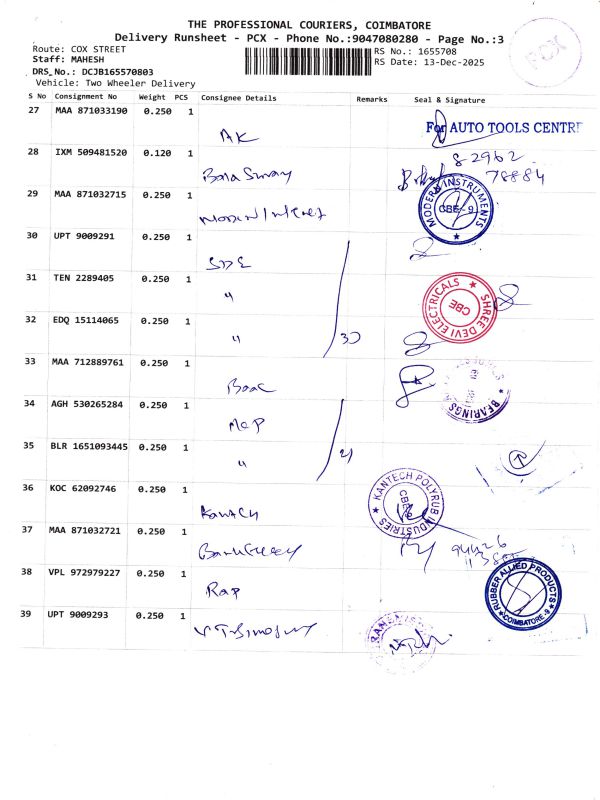 THE PROFESSIONAL COURIERS, COIMBATORE
Delivery Runsheet - PCX - Phone No.:9047080280 - Page No.:3
PCX
Route: COX STREET
RS No.: 1655708
Staff: MAHESH
RS Date: 13-Dec-2025
DRS_No.: DCJB165570803
Vehicle: Two Wheeler Delivery
S No Consignment No Weight PCS Consignee Details Remarks Seal & Signature
27 MAA 871033190 0.250 1
AK
For AUTO TOOLS CENTRE
28 IXM 509481520 0.120 1
82962
78884
29 MAA 871032715 0.250 1
MODERN INSTRUMENTS
CBE-9
30 UPT 9009291 0.250 1
SDE
31 TEN 2289405 0.250 1
"
SHREE DEVI ELECTRICALS
CBE
32 EDQ 15114065 0.250 1
"
33 MAA 712889761 0.250 1
BEARINGS
34 AGH 530265284 0.250 1
35 BLR 1651093445 0.250 1
"
36 KOC 62092746 0.250 1
KANTECH POLYRUB INDUSTRIES
CBE-9
37 MAA 871032721 0.250 1
38 VPL 972979227 0.250 1
Rap
RUBBER ALLIED PRODUCTS
COIMBATORE-9
39 UPT 9009293 0.250 1